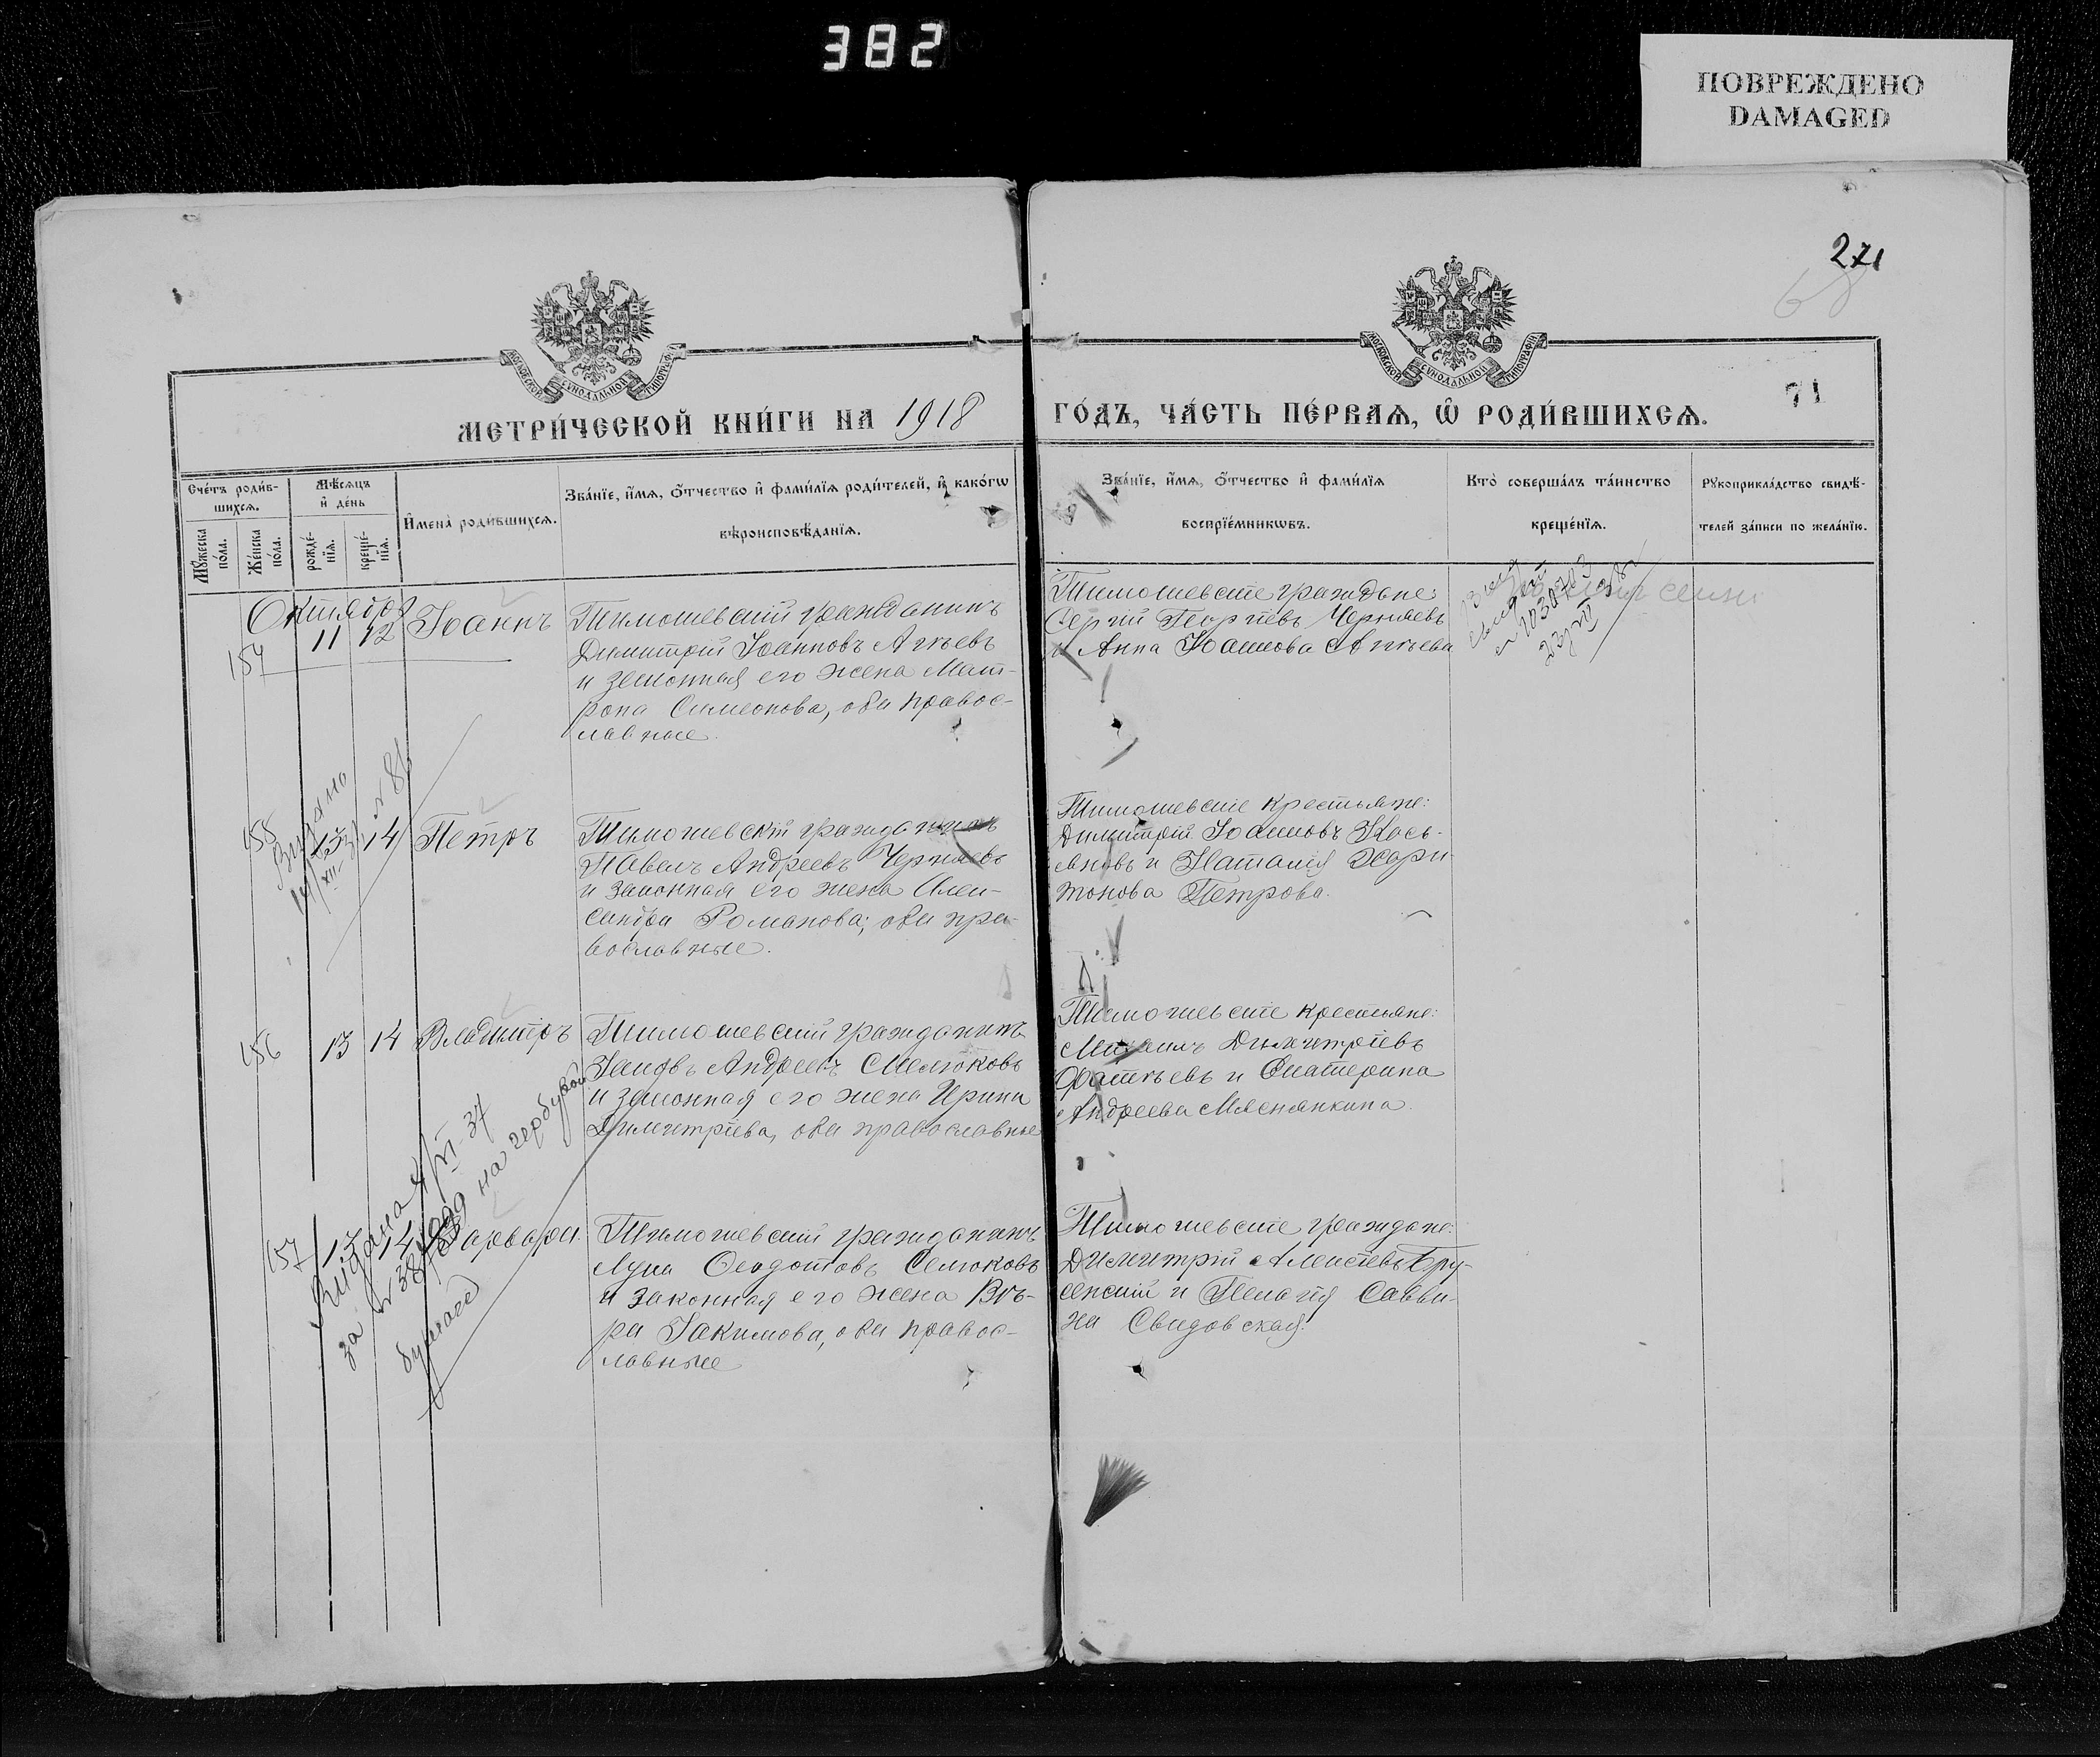 382
ПОВРЕЖДЕНО
DAMAGED
271
68
71
МОСКОВСКОЙ СѴНОДАЛЬНОЙ ТИПОГРАФІИ
МОСКОВСКОЙ СѴНОДАЛЬНОЙ ТИПОГРАФІИ
МЕТРИ́ЧЕСКОЙ КНИ́ГИ НА 1918 ГО́ДЪ, ЧА́СТЬ ПЕ́РВАѦ, Ѡ҆ РОДИ́ВШИХСѦ.
Сче́тъ роди́в-
шихсѧ.
Мꙋ́жеска по́ла.
Же́нска по́ла.
Мѣ́сѧцъ
и҆ де́нь
рожде́-
нїѧ.
креще́-
нїѧ.
И҆мена̀ роди́вшихсѧ.
Зва́нїе, и҆́мѧ, ѻ҆́тчество и҆ фами́лїѧ роди́телей, и҆ како́гѡ
вѣроисповѣ́данїѧ.
Зва́нїе, и҆́мѧ, ѻ҆́тчество и҆ фами́лїѧ
воспрїе́мникѡвъ.
Кто̀ соверша́лъ та́инство
креще́нїѧ.
Рꙋкоприкла́дство свидѣ́-
телей за́писи по жела́нїю.
Октября
154 11 12 Іоаннъ
Тимошевскій гражданинъ
Димитрій Іоанновъ Агѣевъ
и законная его жена Мат-
рона Симеонова, оба правос-
лавные.
Тимошевскіе граждане:
Сергій Георгіевъ Черняевъ
и Анна Іоаннова Агѣева
155 13 14 Петръ
Выдано
№ 86
Тимошевскій гражданинъ
Павелъ Андреевъ Черняевъ
и законная его жена Алек-
сандра Романова, оба пра-
вославные.
Тимошевскіе крестьяне:
Димитрій Іоанновъ Кась-
яновъ и Наталія Хари-
тонова Петрова.
156 13 14 Владиміръ
Тимошевскій гражданинъ
Іаковъ Андреевъ Смелюковъ
и законная его жена Ирина
Димитріева, оба православные
Тимошевскіе крестьяне:
Михаилъ Димитріевъ
Фатѣевъ и Екатерина
Андреева Мяснянкина.
157 13 14 Варвара
Выдана 4/VI-37
за № на гербовой
бумаге
Тимошевскій гражданинъ
Лука Ѳеодотовъ Селюковъ
и законная его жена Вѣ-
ра Іакимова, оба правос-
лавные
Тимошевскіе граждане:
Димитрій Алексіевъ Бру-
сенскій и Пелагія Савви-
на Свидовская.